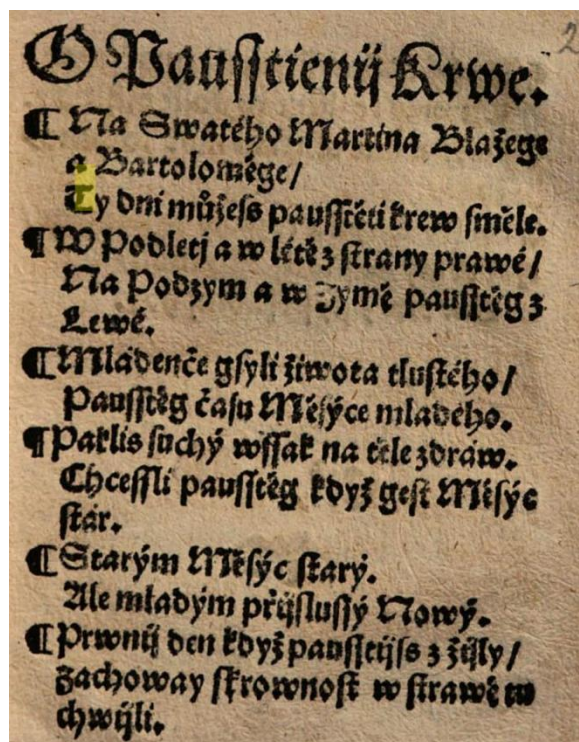 O Pausstienij Krwe.
¶ Na Swatého Martina Blažege
a Bartoloměge/
Ty dni můžess pausstěti krew směle.
¶ W Podletj a w létě z strany prawé/
Na Podzym a w Zymě pausstěg z
Lewé.
¶ Mládenče gsyli žiwota tlustého/
Pausstěg času Měsýce mladého.
¶ Paklis suchý wssak na těle zdráw.
Chcessli pausstěg když gest Měsýc
stár.
¶ Starým Měsýc starý.
Ale mladým přijslussý Nowý.
¶ Prwnij den když pausstijss z žijly/
Zachoway skrownost w strawě tu
chwijli.
2